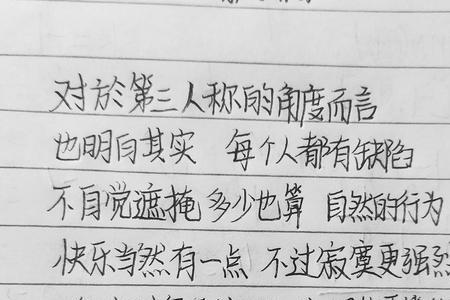 对於第三人称的角度而言
也明白其实 每个人都有缺陷
不自觉遮掩 多少也算 自然的行为
快乐当然有一点 不过寂寞更强烈